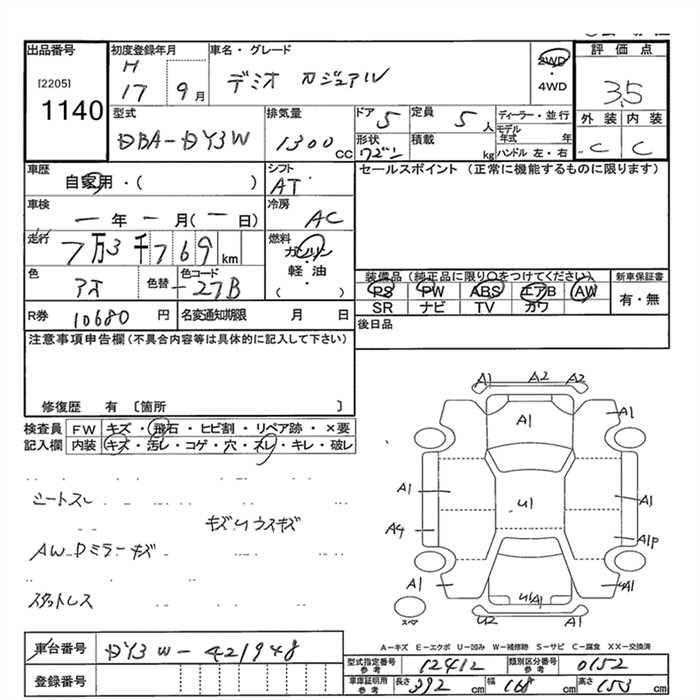 出品番号
[2205]
1140
初度登録年月
H
17 9月
車名・グレード
デミオ カジュアル
2WD
・
4WD
評価点
3.5
外装 内装
C C
型式
DBA-DY3W
排気量
1300 cc
ドア 5
定員 5人
形状
ワゴン
積載 kg
ディーラー・並行
モデル年式 年
ハンドル 左・右
車歴
自家用・( )
シフト
AT
セールスポイント (正常に機能するものに限ります)
車検
ー年ー月(ー日)
冷房
AC
走行
7万3千769km
燃料
ガソリン
・
軽・油
( )
色
アオ
色替
色コード
27B
装備品(純正品に限り○をつけてください)
新車保証書
PS PW ABS エアB AW
SR ナビ TV カワ
有・無
R券 10680円
名変通知期限 月 日
後日品
注意事項申告欄(不具合内容等は具体的に記入して下さい)
修復歴 有 〔箇所 〕
検査員 FW キズ・飛石・ヒビ割・リペア跡・×要
記入欄 内装 キズ・汚レ・コゲ・穴・スレ・キレ・破レ
シートスレ
キズUウスキズ
AW-Dミラーキズ
スタットレス
A1 A2 A2
A1 A1
A1 U1 A1
A4 A1P
A1 U1A1 A1
スペア U2 A1
A-キズ E-エクボ U-凹み W-補修跡 S-サビ C-腐食 XX-交換済
車台番号 DY3W-421948
登録番号
型式指定番号 参考 12412
類別区分番号 参考 0152
車庫証明用 参考 長さ 392cm 幅 168cm 高さ 153cm